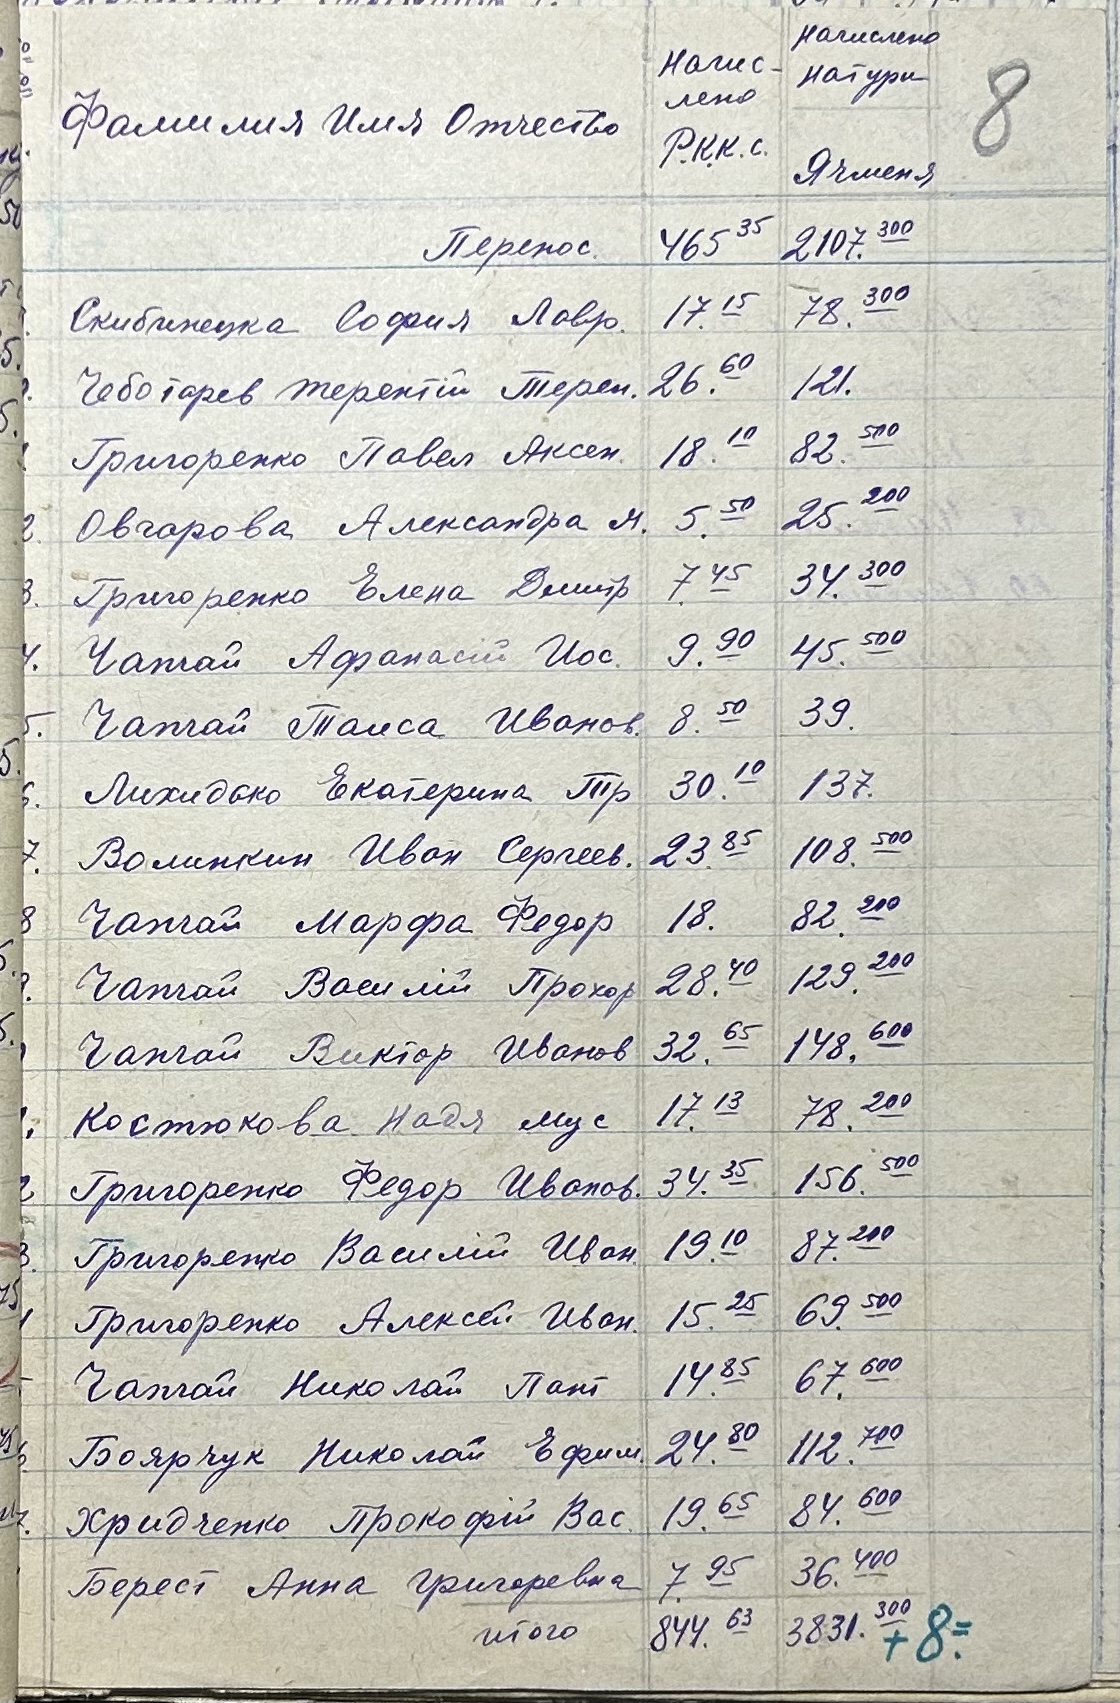 Фамилия Имя Отчество
Начис-
лено
Р.К.К.С.
Начислено
Натури
Ячменя
8
Перенос. 465 35 2107.300
Скибинецка София Лавр. 17.15 78.300
Чеботарев Терентій Терен. 26.60 121.
Григоренко Павел Аксен. 18.10 82.500
2. Овчарова Александра М. 5.50 25.200
3. Григоренко Елена Дмитр 7.45 34.300
4. Чапчай Афанасій Иос. 9.90 45.500
5. Чапчай Таиса Иванов. 8.50 39.
6. Лихидько Екатерина Тр 30.10 137.
7. Волинкин Иван Сергеев. 23.85 108.500
8 Чапчай Марфа Федор 18. 82.200
9. Чапчай Василій Прохор 28.40 129.200
Чапчай Виктор Иванов 32.65 148.600
1. Костюкова Надя Мус 17.13 78.200
2 Григоренко Федор Иванов. 34.35 156.500
3. Григоренко Василій Иван. 19.10 87.200
Григоренко Алексей Иван. 15.25 69.500
Чапчай Николай Пант 14.85 67.600
6. Боярчук Николай Ефим. 24.80 112.700
7. Хридченко Прокофій Вас. 19.65 84.600
Берест Анна Григоревна 7.95 36.400
итого 844.63 3831.300 + 8=